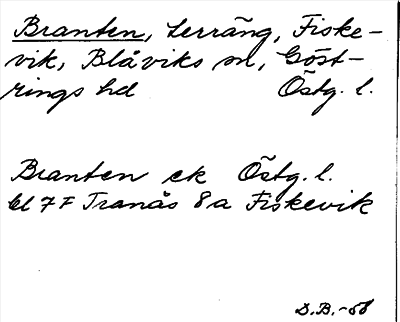 Branten, terräng, Fiske-
vik, Blåviks sn, Göst-
rings hd Östg. l.
Branten ek Östg. l.
bl 7 F Tranås 8 a Fiskevik
D.B. -56